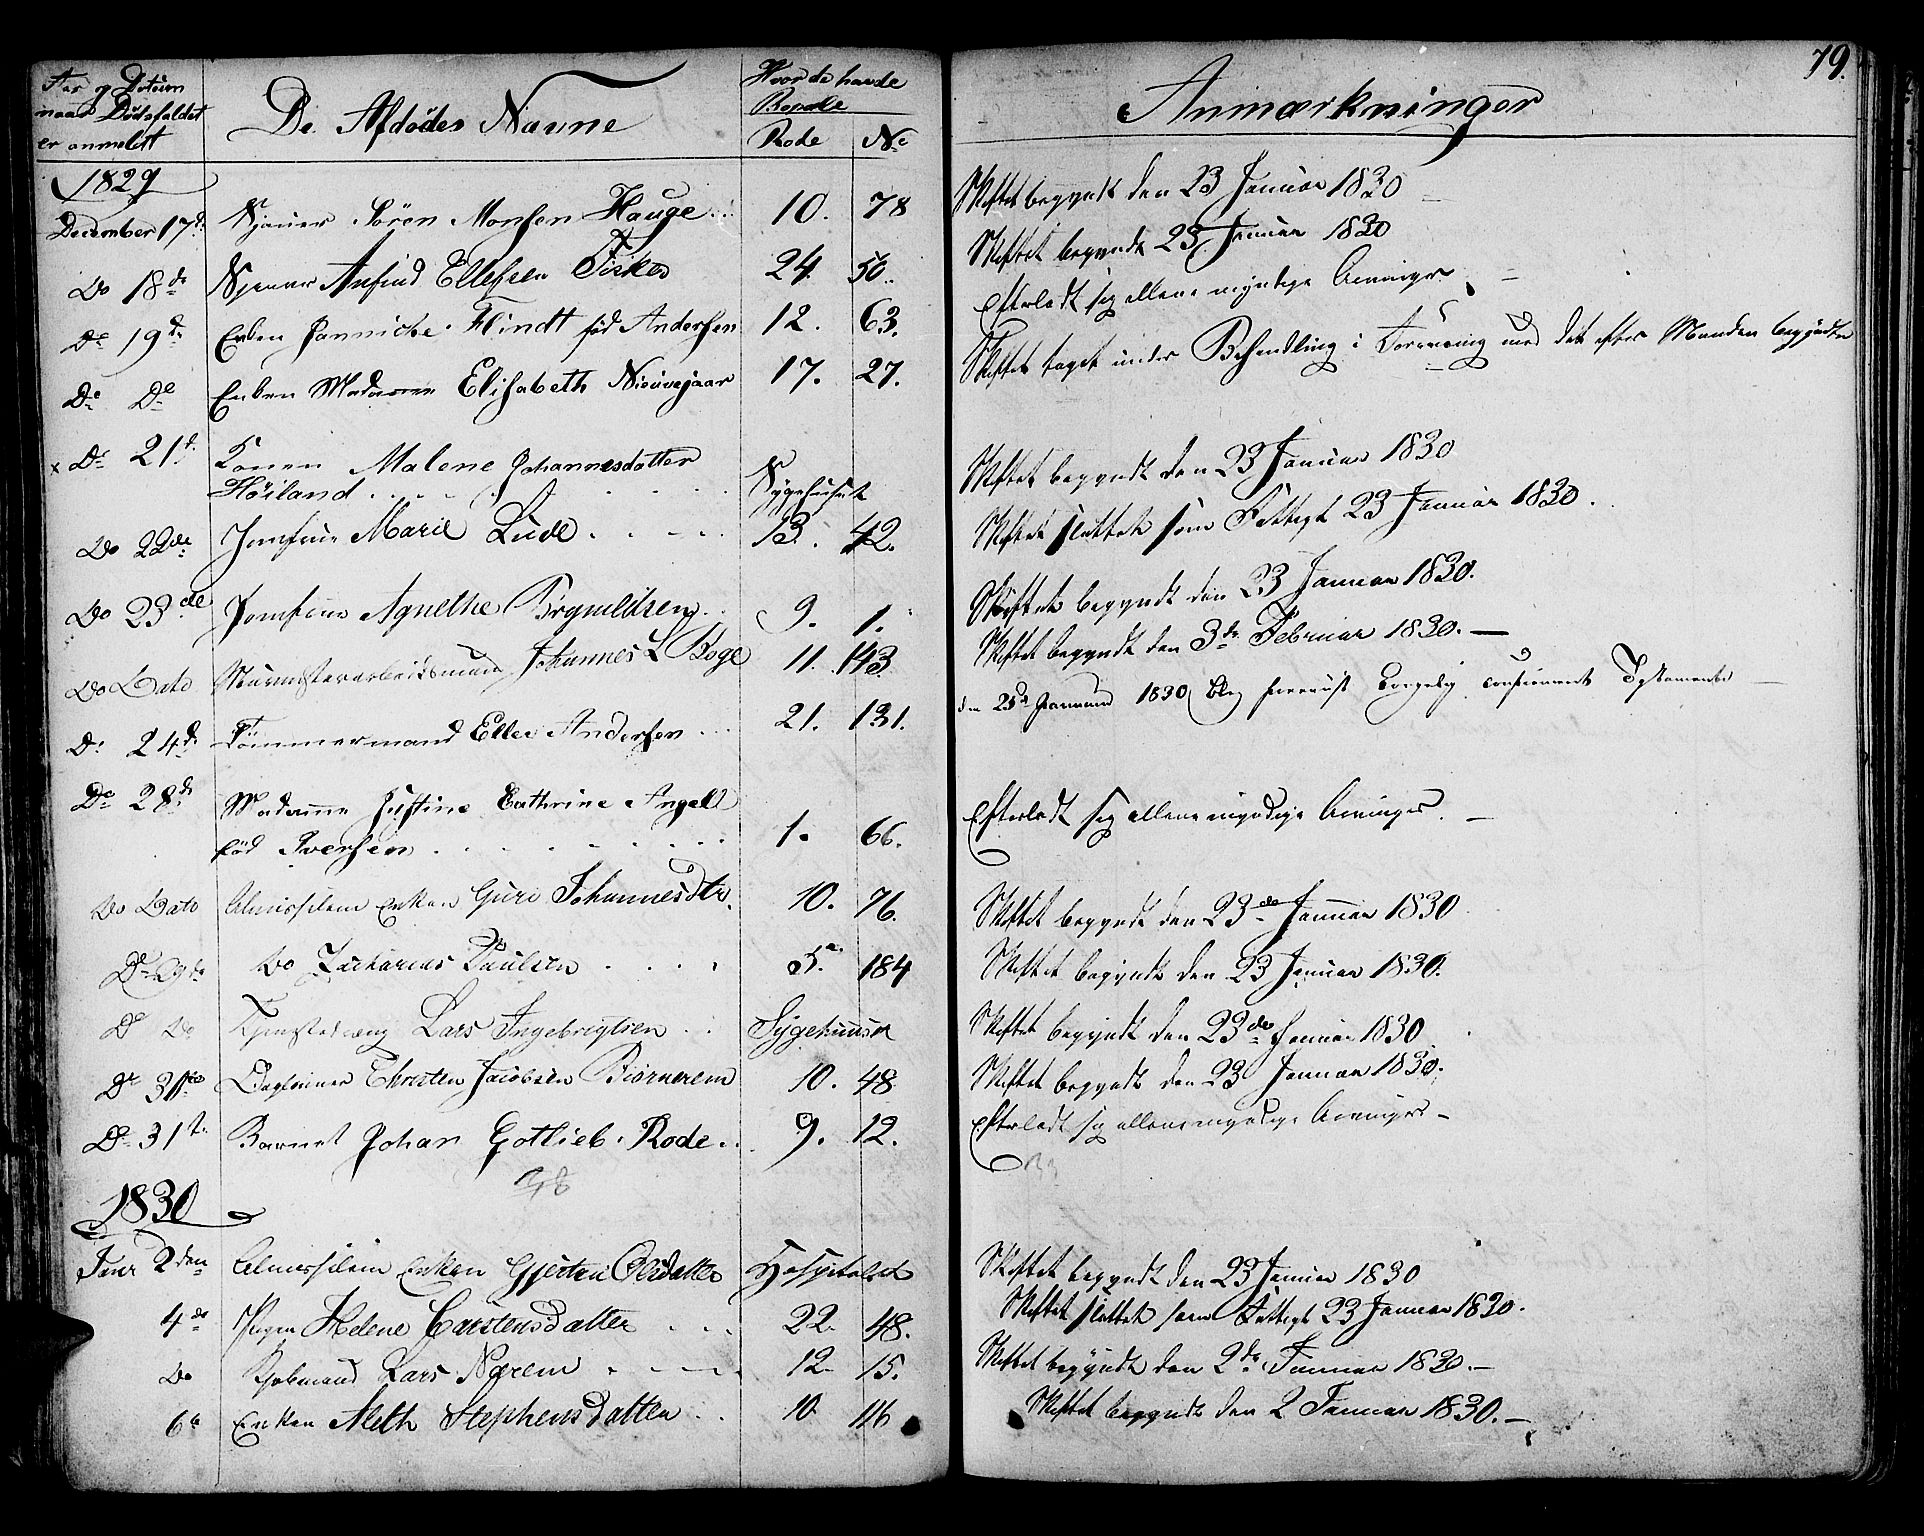 Aar og Datum
naar Dødsfaldet
er anmeldt
De Afdødes Navne
Hvor de havde
Bopæle
Rode No
Anmærkninger
79.
1829
December 17d. Sjouer Sören Monsen Hauge 10. 78 Skiftet begyndt den 23 Januar 1830
Do 18de Sjouer Anfind Ellefsen Fisker 24 50. Skiftet begyndt 23 Januar 1830
Do 19d. Enken Jannicke Flindt fød Andersen 12. 63. Efterlodt sig allene myndige Arvinger.
Do Do Enken Madame Elisabeth Nieuwejaar 17. 27. Skiftet taget under Behandling i Forening med det efter Manden begyndte
x Do 21d. Konen Malene Johannesdatter
Höiland Sygehuset Skiftet begyndt den 23 Januar 1830
Do 22de Jomfrue Marie Lude 13. 42. Skiftet sluttet som Fattigt 23 Januar 1830.
Do 23de Jomfrue Agnethe Brynildsen 9. 1. Skiftet begyndt den 23 Januar 1830.
Do Dato Muurmesterarbeidsmand Johannes L Boge 11. 143. Skiftet begyndt den 3de Februar 1830.
Do 24d. Tömmermand Eller Andersen 21. 131. den 25d Januar 1830 Blev foreviist Kongelig confirmeret Testamente
Do 28d. Madame Justine Cathrine Angell
fød Iversen 1. 66. Efterlodt sig allene myndige Arvinger.
Do Dato Almisselem Enken Guri Johannesdtr. 10. 76. Skiftet begyndt den 23de Januar 1830
Do 29de Do Zacharias Paulsen 5. 184 Skiftet begyndt den 23 Januar 1830.
Do Do Tjenestedreng Lars Ingebrigtsen Sygehuuset Skiftet begyndt den 23de Januar 1830.
Do 31te Dagleiner Christen Jacobsen Biörnerem 10. 48 Skiftet begyndt den 23 Januar 1830.
Do 31t. Barnet Johan Gotlieb Rode 9. 12. Efterlodt sig allene myndige Arvinger
1830
Janr 2den Almisselem Enken Gjertrü Olsdatter Hospitalet Skiftet begyndt den 23 Januar 1830
4de Pigen Helene Carstensdatter 22. 48. Skiftet sluttet som Fattigt 23 Januar 1830.
Do Kjøbmand Lars Nærem 12. 15. Skiftet begyndt den 2de Januar 1830.
6te Enken Aleth Stephensdatter 10 116 Skiftet begyndt den 2 Januar 1830.